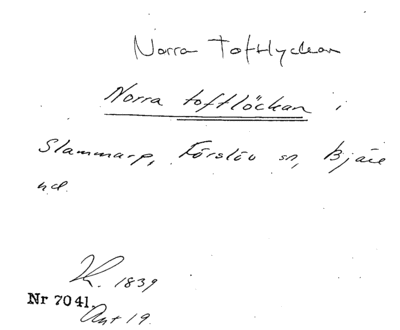 Norra Toftlyckan
Norra toftlöckan i
Slammarp, Förslöv sn, Bjäre
hd
K. 1839
Nr 7041.
Akt 19.